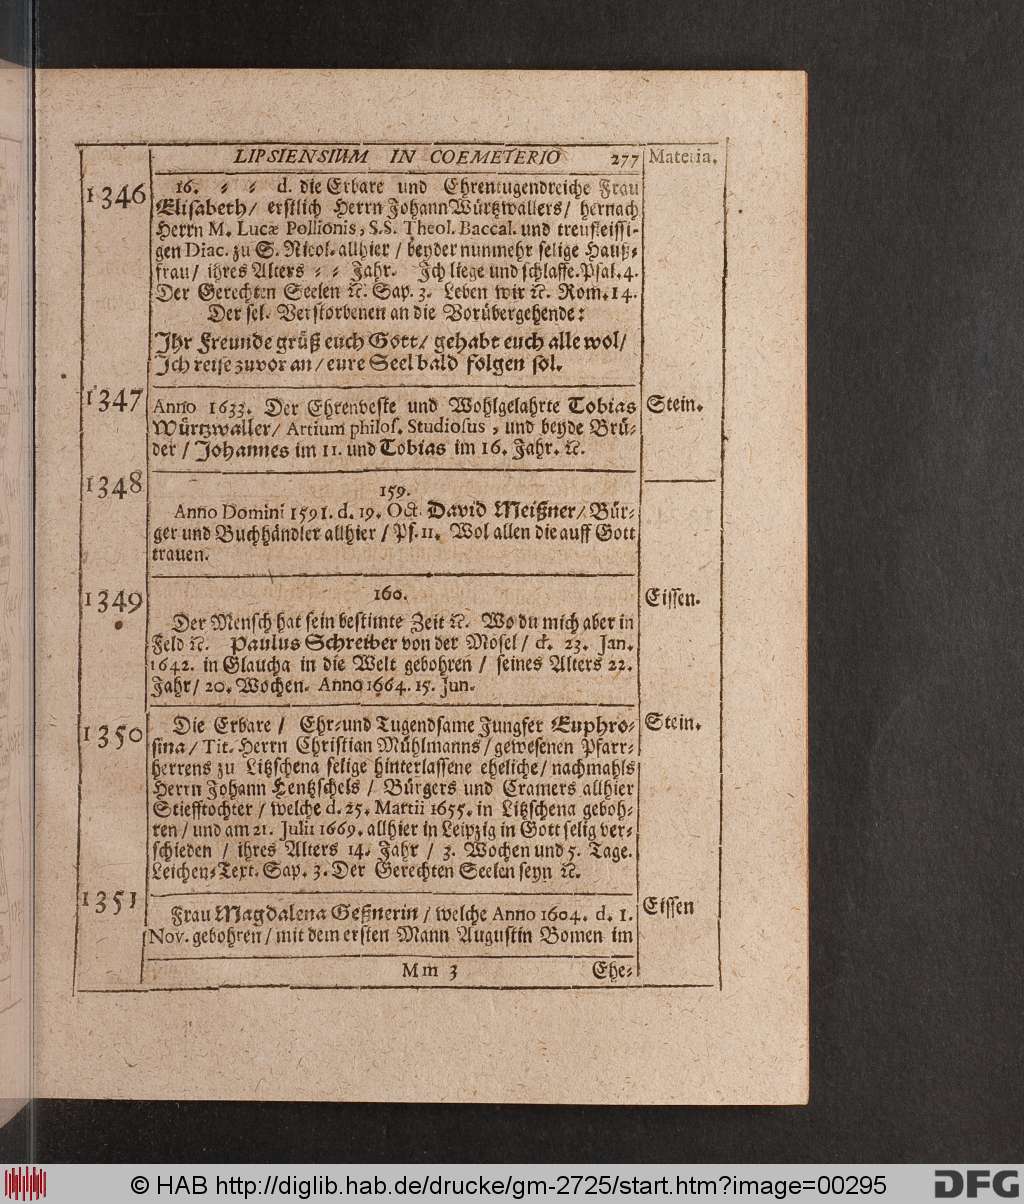 LIPSIENSIUM IN COEMETERIO 277 Materia.
1346 16. ⸗ ⸗ d. die Erbare und Ehrentugendreiche Frau
Elisabeth/ erstlich Herrn Johann Würtzwallers/ hernach
Herrn M. Lucæ Pollionis, S.S. Theol. Baccal. und treufleissi⸗
gen Diac. zu S. Nicol. allhier / beyder nunmehr selige Hauß⸗
frau/ ihres Alters ⸗ ⸗ Jahr. Ich liege und schlaffe. Psal. 4.
Der Gerechten Seelen ꝛc. Sap. 3. Leben wir ꝛc. Rom. 14.
Der sel. Verstorbenen an die Vorübergehende:
Ihr Freunde grüß euch Gott/ gehabt euch alle wol/
Ich reise zuvor an/ eure Seel bald folgen sol.
1347 Anno 1633. Der Ehrenveste und Wohlgelahrte Tobias Stein.
Würtzwaller/ Artium philos. Studiosus, und beyde Brü⸗
der / Johannes im 11. und Tobias im 16. Jahr. ꝛc.
1348 159.
Anno Domini 1591. d. 19. Oct. David Meißner/ Bür⸗
ger und Buchhändler allhier / Ps. 11. Wol allen die auff Gott
trauen.
1349 160. Eissen.
Der Mensch hat sein bestimte Zeit ꝛc. Wo du mich aber in
Feld ꝛc. Paulus Schreiber von der Mosel / d. 23. Jan.
1642. in Glaucha in die Welt gebohren / seines Alters 22.
Jahr/ 20. Wochen. Anno 1664. 15. Jun.
1350 Die Erbare / Ehr⸗und Tugendsame Jungfer Euphro⸗ Stein.
sina/ Tit. Herrn Christian Mühlmanns/ gewesenen Pfarr⸗
herrens zu Litzschena selige hinterlassene eheliche/ nachmahls
Herrn Johann Hentzschels / Bürgers und Cramers allhier
Stiefftochter / welche d. 25. Martii 1655. in Litzschena geboh⸗
ren / und am 21. Julii 1669. allhier in Leipzig in Gott selig ver⸗
schieden / ihres Alters 14. Jahr / 3. Wochen und 5. Tage.
Leichen⸗Text. Sap. 3. Der Gerechten Seelen seyn ꝛc.
1351 Frau Magdalena Geßnerin / welche Anno 1604. d. 1. Eissen
Nov. gebohren / mit dem ersten Mann Augustin Bomen im
Mm 3 Ehe⸗
© HAB http://diglib.hab.de/drucke/gm-2725/start.htm?image=00295
DFG